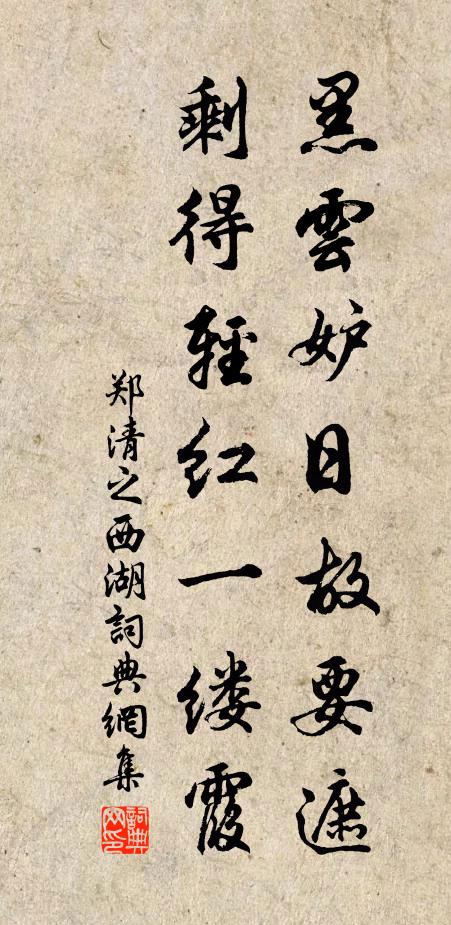 黑雲妒日故要遮
剩得輕红一缕霞
郑清之西湖詞典網集
詞典网印